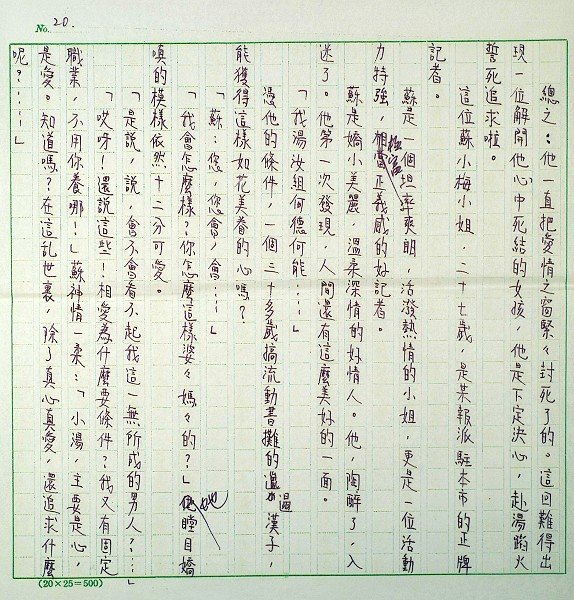 No. 20.
總之:他一直把愛情之窗緊々封死了的。這回難得出
現一位解開他心中死結的女孩,他是下定決心,赴湯蹈火
誓死追求啦。
這位蘇小梅小姐,二十七歲,是某報派駐本市的正牌
記者。
蘇是一個坦率爽朗,活潑熱情的小姐,更是一位活動
力特強,極富正義感的好記者。
蘇是嬌小美麗,溫柔深情的好情人。他,陶醉了,入
迷了。他第一次發現,人間還有這麼美好的一面。
「我湯汝組何德何能……」
憑他的條件,一個三十多歲搞流動書攤的溫漢子,
能獲得這樣如花美眷的心嗎?
「蘇:您,您會,會……」
「我會怎麼樣?你怎麼這樣婆々媽々的?」她瞪目嬌
嗔的模樣依然十二分可愛。
「是說,說,會不會看不起我這一無所成的男人?……」
「哎呀!還說這些!相愛為什麼要條件?我又有固定
職業,不用你養哪!」蘇神情一柔:「小湯,主要是心,
是愛。知道嗎?在這乱世裏,除了真心真愛,還追求什麼
呢?……」
(20×25=500)